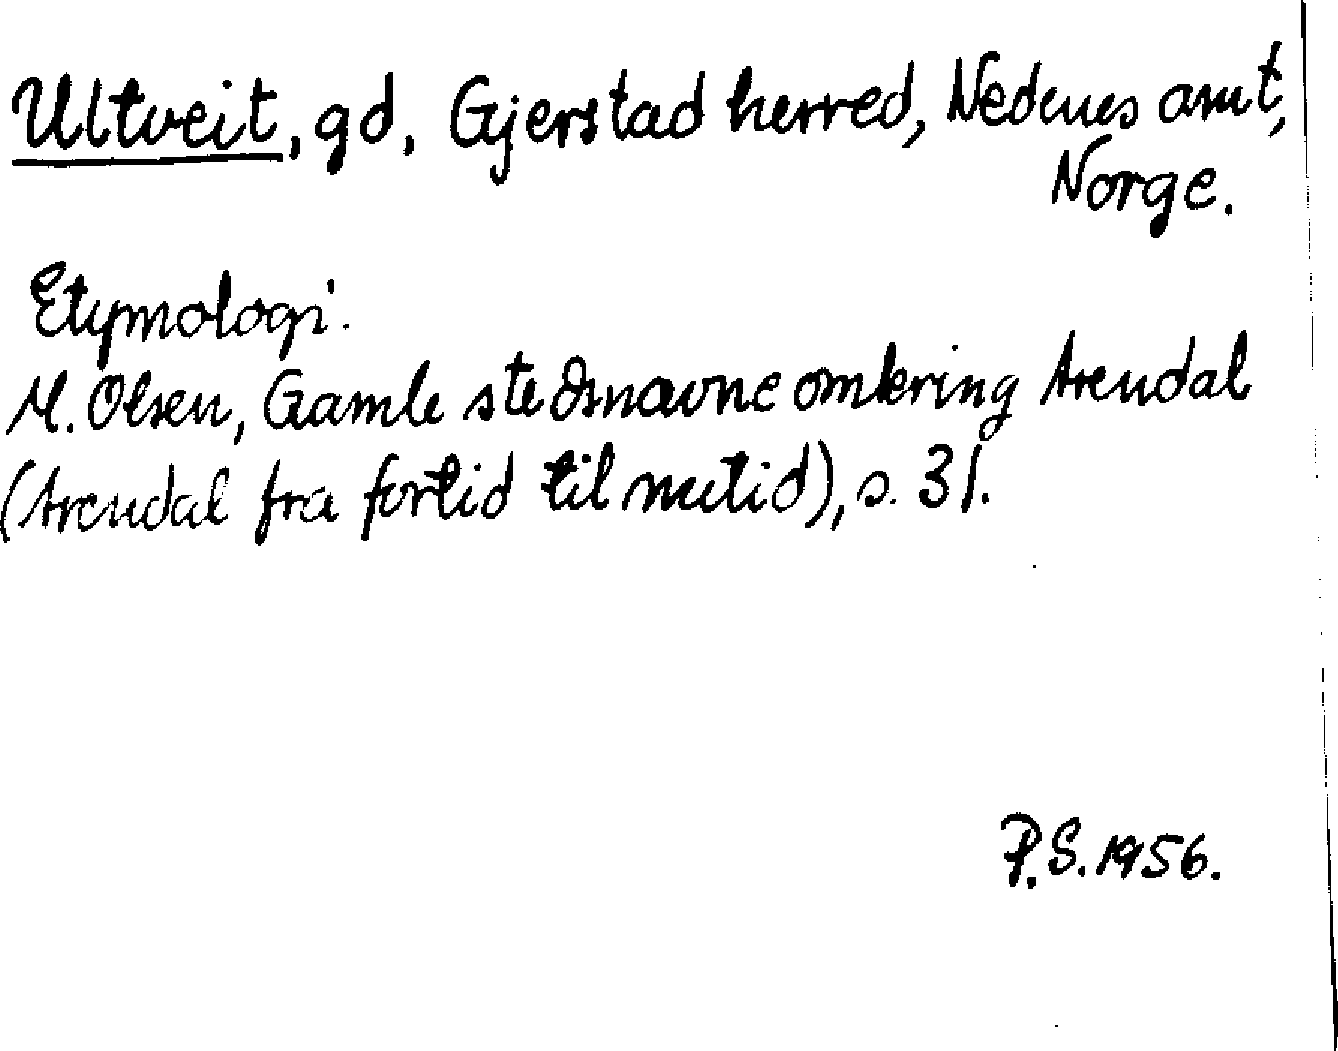 Ultveit, gd. Gjerstad herred, Nedenes amt,
Norge.
Etymologi.
M. Olsen, Gamle stedsnavne omkring Arendal
(Arendal fra fortid til nutid), s. 31.
P.S. 1956.